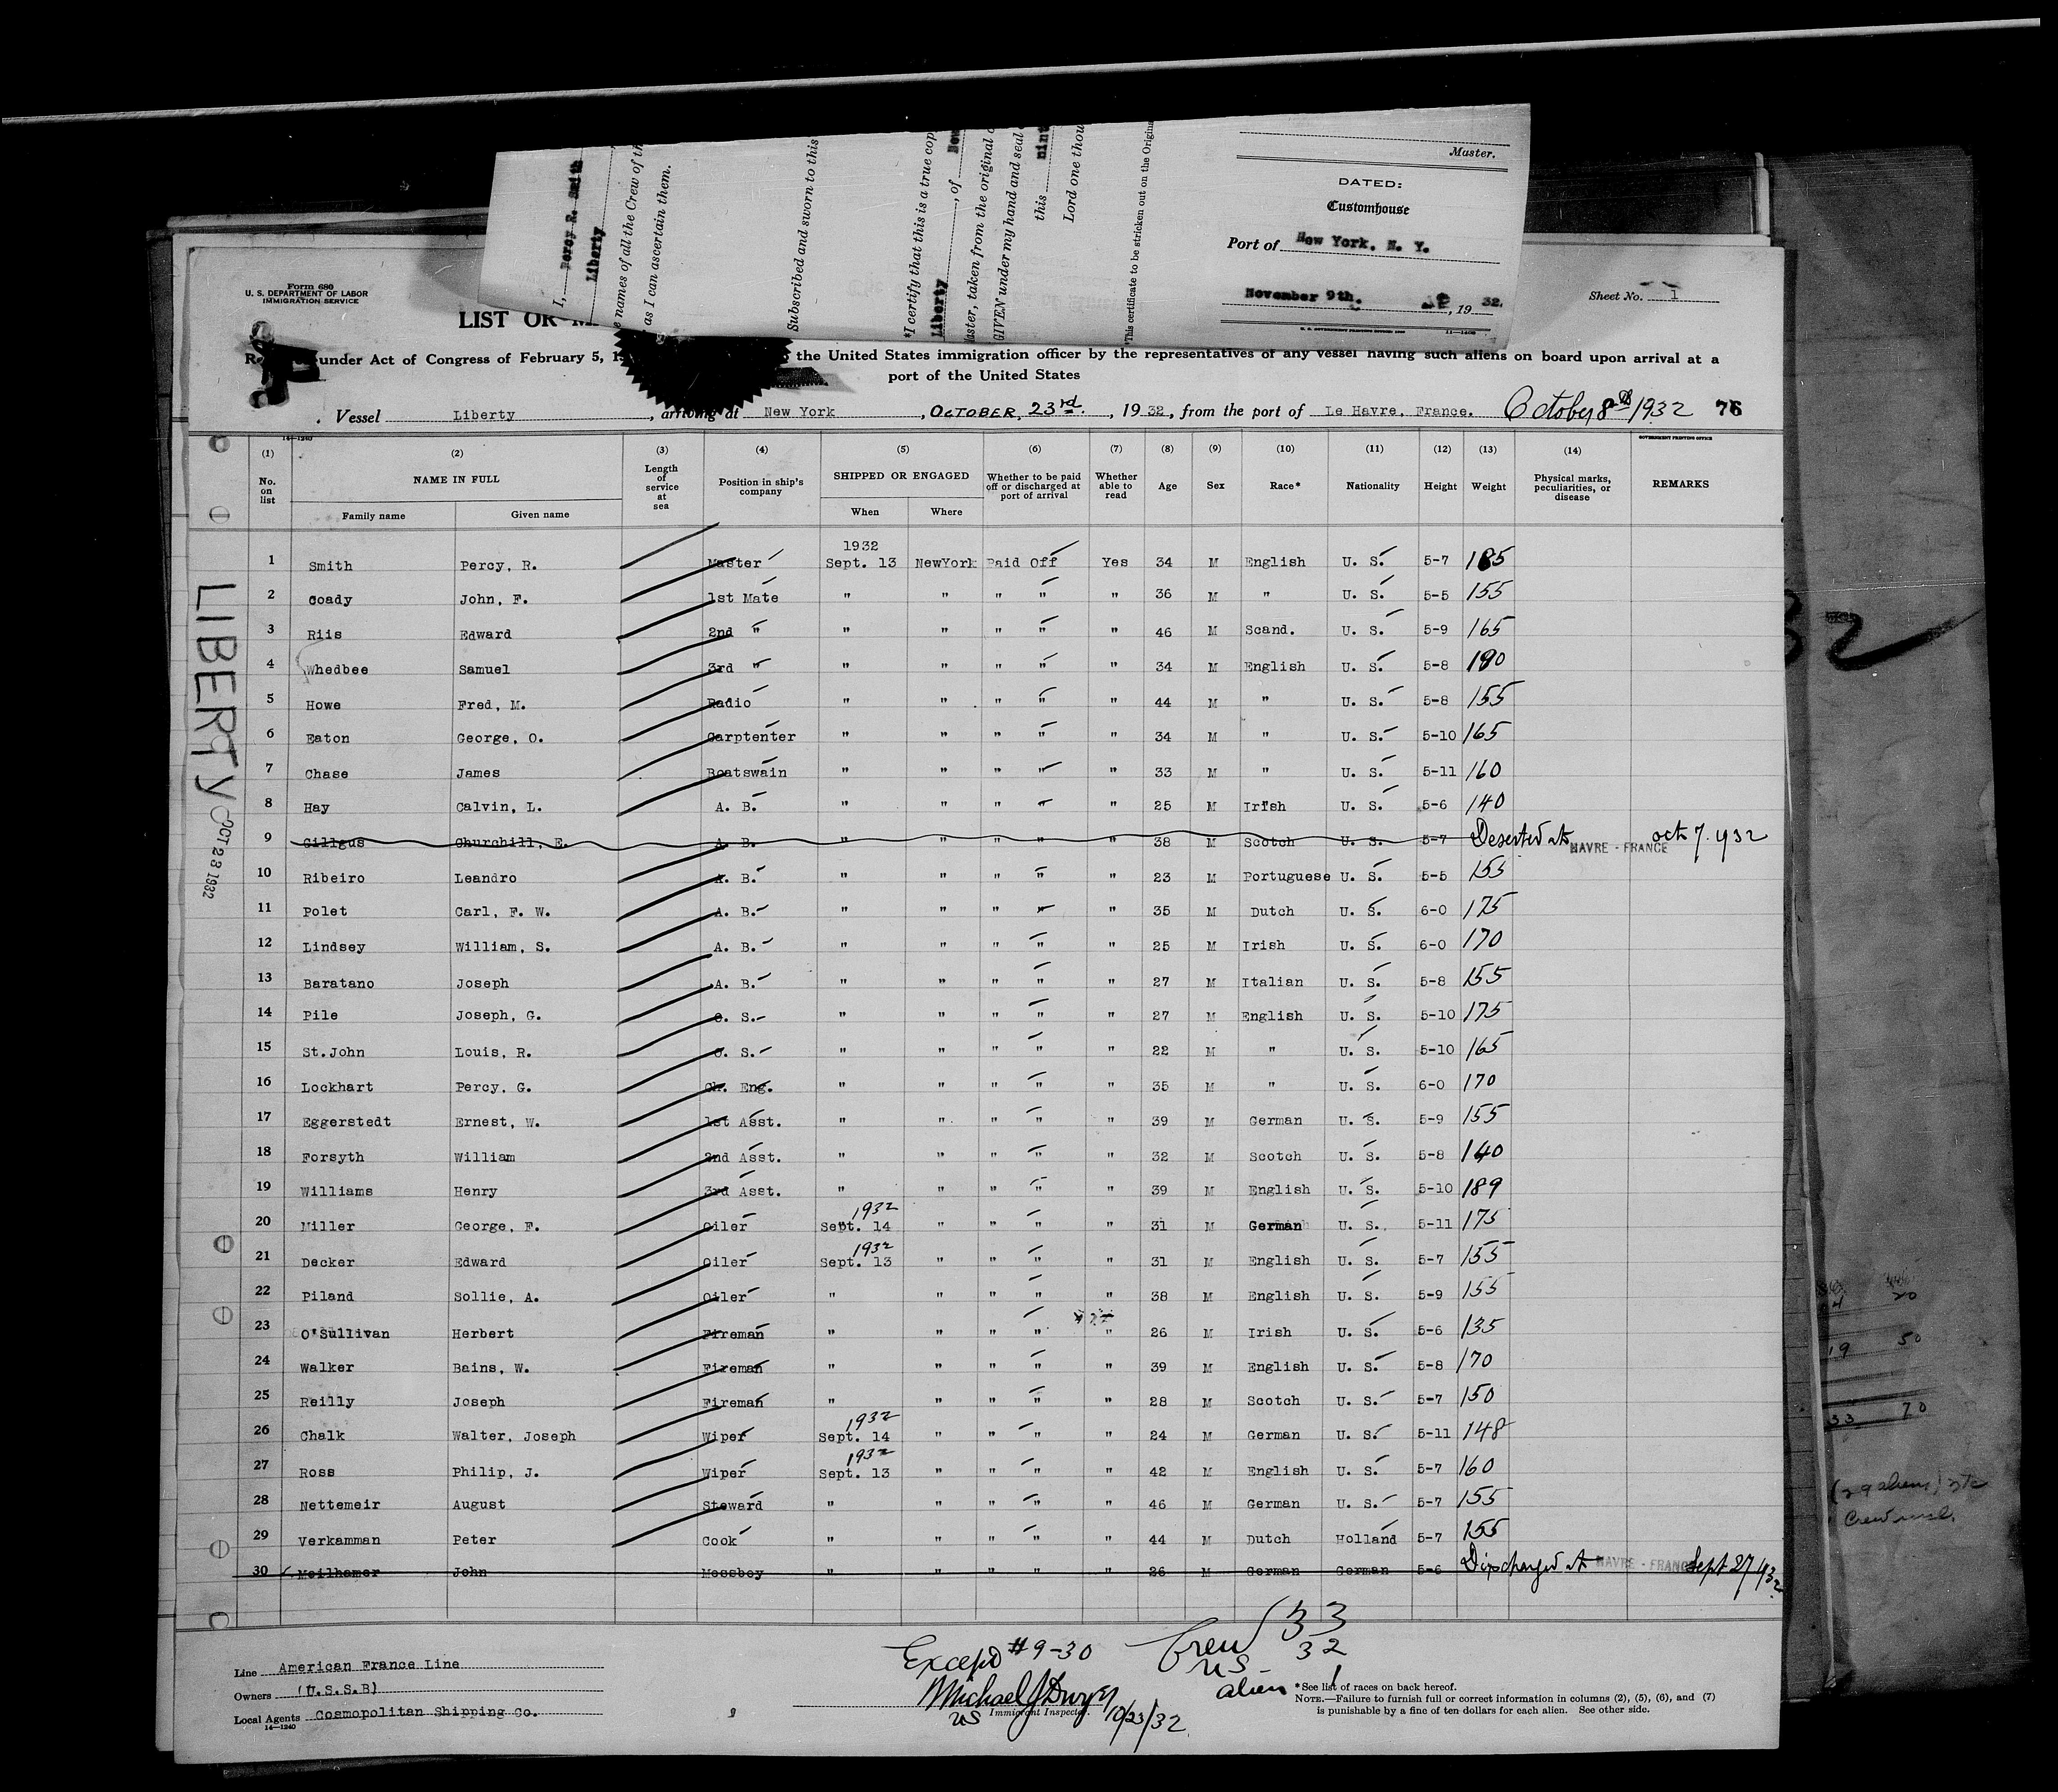 I, Percy R. Smith
Liberty
names of all the Crew of th
as I can ascertain them.
Subscribed and sworn to this
*I certify that this is a true cop
Liberty , of New
Master, taken from the original
GIVEN under my hand and seal
this nint
Lord one thou
*This certificate to be stricken out on the Origina
Master.
DATED:
Customhouse
Port of New York, N. Y.
November 9th. , 19 32.
Form 680
U. S. DEPARTMENT OF LABOR
IMMIGRATION SERVICE
Sheet No. 1
LIST OR
under Act of Congress of February 5, the United States immigration officer by the representatives of any vessel having such aliens on board upon arrival at a
port of the United States
Vessel Liberty , arriving at New York , OCTOBER, 23rd. , 19 32, from the port of Le Havre, France. October 8th 1932 76
14—1240
GOVERNMENT PRINTING OFFICE
(1) (2) (3) (4) (5) (6) (7) (8) (9) (10) (11) (12) (13) (14)
No. on list NAME IN FULL Length of service at sea Position in ship's company SHIPPED OR ENGAGED Whether to be paid off or discharged at port of arrival Whether able to read Age Sex Race* Nationality Height Weight Physical marks, peculiarities, or disease REMARKS
Family name Given name When Where
1932
1 Smith Percy, R. Master Sept. 13 NewYork Paid Off Yes 34 M English U. S. 5-7 185
2 Coady John, F. 1st Mate " " " " " 36 M " U. S. 5-5 155
3 Riis Edward 2nd " " " " " " 46 M Scand. U. S. 5-9 165
4 Whedbee Samuel 3rd " " " " " " 34 M English U. S. 5-8 190
5 Howe Fred, M. Radio " " " " " 44 M " U. S. 5-8 155
6 Eaton George, O. Carptenter " " " " " 34 M " U. S. 5-10 165
7 Chase James Boatswain " " " " " 33 M " U. S. 5-11 160
8 Hay Calvin, L. A. B. " " " " " 25 M Irish U. S. 5-6 140
9 Gillgus Churchill, E. A. B. " " " " " 38 M Scotch U. S. 5-7 Deserted at HAVRE - FRANCE oct 7. 1932
10 Ribeiro Leandro A. B. " " " " " 23 M Portuguese U. S. 5-5 155
11 Polet Carl, F. W. A. B. " " " " " 35 M Dutch U. S. 6-0 175
12 Lindsey William, S. A. B. " " " " " 25 M Irish U. S. 6-0 170
13 Baratano Joseph A. B. " " " " " 27 M Italian U. S. 5-8 155
14 Pile Joseph, G. O. S. " " " " " 27 M English U. S. 5-10 175
15 St.John Louis, R. O. S. " " " " " 22 M " U. S. 5-10 165
16 Lockhart Percy, G. Ch. Eng. " " " " " 35 M " U. S. 6-0 170
17 Eggerstedt Ernest, W. 1st Asst. " " " " " 39 M German U. S. 5-9 155
18 Forsyth William 2nd Asst. " " " " " 32 M Scotch U. S. 5-8 140
19 Williams Henry 3rd Asst. " " " " " 39 M English U. S. 5-10 189
1932
20 Miller George, F. Oiler Sept. 14 " " " " 31 M German U. S. 5-11 175
1932
21 Decker Edward Oiler Sept. 13 " " " " 31 M English U. S. 5-7 155
22 Piland Sollie, A. Oiler " " " " " 38 M English U. S. 5-9 155
23 O'Sullivan Herbert Fireman " " " " " 26 M Irish U. S. 5-6 135
24 Walker Bains, W. Fireman " " " " " 39 M English U. S. 5-8 170
25 Reilly Joseph Fireman " " " " " 28 M Scotch U. S. 5-7 150
1932
26 Chalk Walter, Joseph Wiper Sept. 14 " " " " 24 M German U. S. 5-11 148
1932
27 Ross Philip, J. Wiper Sept. 13 " " " " 42 M English U. S. 5-7 160
28 Nettemeir August Steward " " " " " 46 M German U. S. 5-7 155
29 Verkamman Peter Cook " " " " " 44 M Dutch Holland 5-7 155
30 Meilhamer John Messboy " " " " " 26 M German German 5-6 Discharged at HAVRE - FRANCE Sept 27/932
LIBERTY
OCT 23 1932
Except #9-30
Crew 33
US 32
alien 1
Line American France Line
Owners (U.S.S.B)
Local Agents Cosmopolitan Shipping Co.
14—1240
Michael J Dwyer
US Immigrant Inspector. 10/23/32
*See list of races on back hereof.
NOTE.—Failure to furnish full or correct information in columns (2), (5), (6), and (7)
is punishable by a fine of ten dollars for each alien. See other side.
32
19 50
33 70